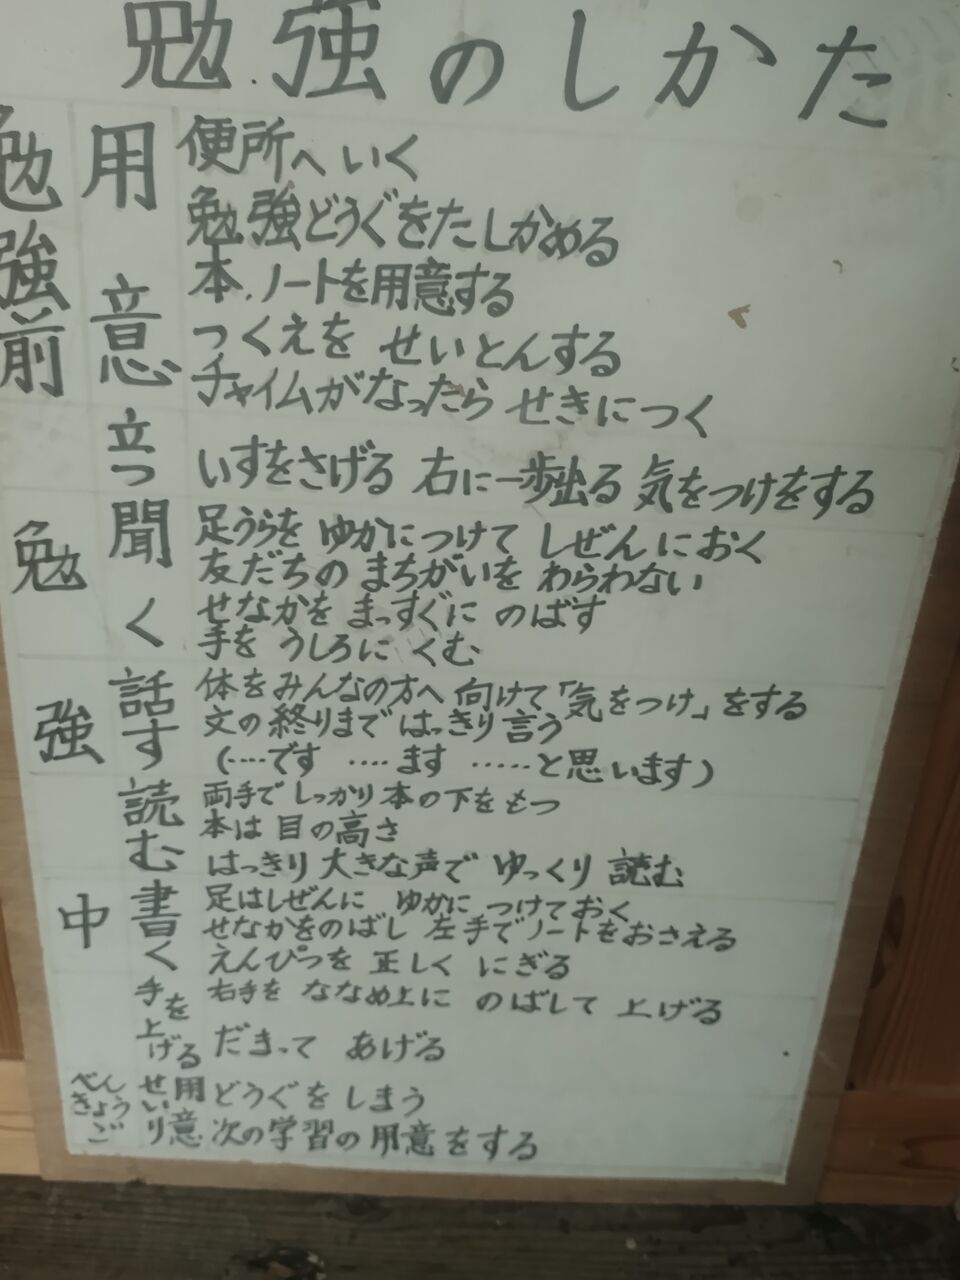 勉強のしかた
勉強前
用意
便所へいく
勉強どうぐをたしかめる
本、ノートを用意する
つくえを せいとんする
チャイムがなったら せきにつく
勉強中
立つ
いすをさげる 右に一歩出る 気をつけをする
聞く
足うらを ゆかにつけて しぜんにおく
友だちの まちがいを わらわない
せなかを まっすぐに のばす
手を うしろに くむ
話す
体をみんなの方へ 向けて「気をつけ」をする
文の終りまで はっきり言う
(‥‥です ‥‥ます ‥‥‥と思います)
読む
両手で しっかり 本の下をもつ
本は 目の高さ
はっきり 大きな声で ゆっくり 読む
書く
足はしぜんに ゆかに つけておく
せなかをのばし 左手でノートをおさえる
えんぴつを 正しく にぎる
手を上げる
右手を ななめ上に のばして 上げる
だまって あげる
べんきょうご
せいり用意
どうぐを しまう
次の学習の用意をする